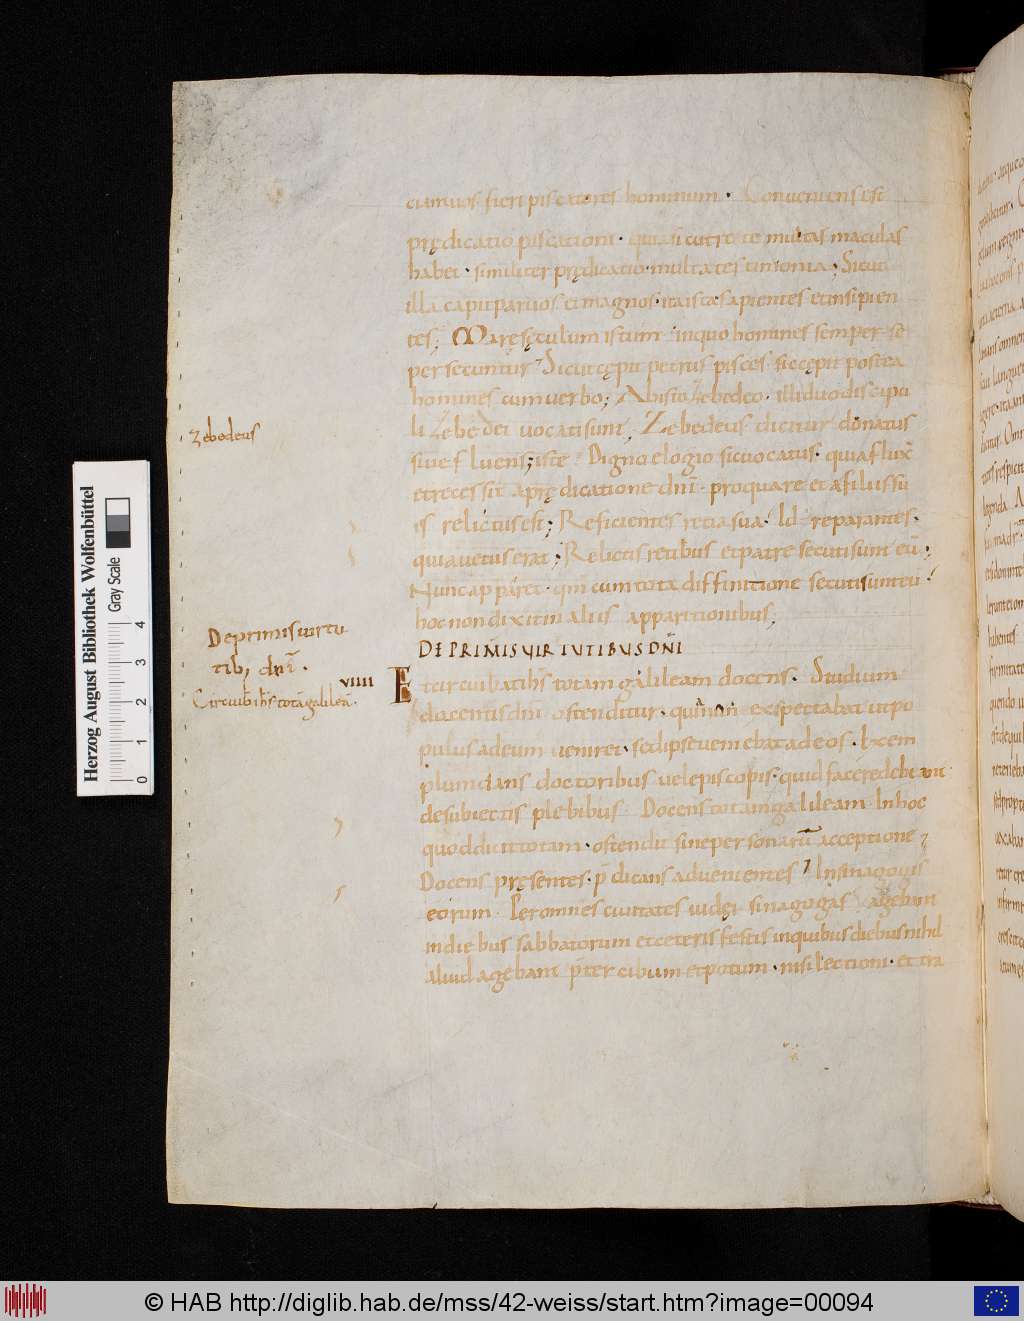 ciam uos fieri piscatores hominum. Conueniens est
prędicatio piscationi. quia sicut rete multas maculas
habet. similiter prędicatio multa testimonia; Sicut
illa capit paruos et magnos. ita ista sapientes et insipien
tes; Mare sęculum istum in quo homines semper se
persecuntur. Sicut cępit petrus pisces. sic cępit postea
homines cum uerbo; Ab isto Zebedeo. illi duo discipu
li Zebedei uocati sunt; Zebedeus dicitur donatus
siue fluens; iste Digno elogio sic uocatus. quia flux̄
et recessit a prędicatione dn̄i. pro quare et a filiis su
is relictus est; Reficientes retia sua. Id reparantes.
quia uetus erat; Relictis retibus et patre secuti sunt eū;
Nunc apparet. qn̄i cum tota diffinitione secuti sunt eū.
hoc non dixit in aliis apparitionibus;
DE PRIMIS VIRTUTIBUS DN̄I
Et circuibat ih̄s totam galileam docens. Studium
docentis dn̄i ostenditur. exspectabat ut po
pulus ad eum ueniret. sed ipse ueniebat ad eos. Exem
plum dans doctoribus uel episcopis. quid facere debent
de subiectis plebibus. Docens totam galileam. In hoc
quod dicit totam. ostendit sine personarū acceptione
Docens pręsentes. p̄dicans aduenientes. In sinagogis
eorum. Per omnes ciuitates iudęi sinagogas agebant
in diebus sabbatorum et ceteris festis in quibus diebus nihil
aliud agebant p̄ter cibum et potum. nisi lectioni. et tra
Zebedeus
De primis uirtu
tib; dn̄i.
Circuib̄ ih̄s totā galileā.
VIIII
Herzog August Bibliothek Wolfenbüttel
Gray Scale
0 1 2 3 4
© HAB http://diglib.hab.de/mss/42-weiss/start.htm?image=00094